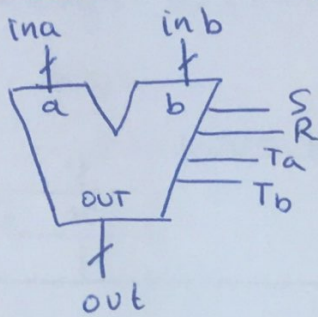 ina inb
a b S
R
Ta
OUT Tb
out